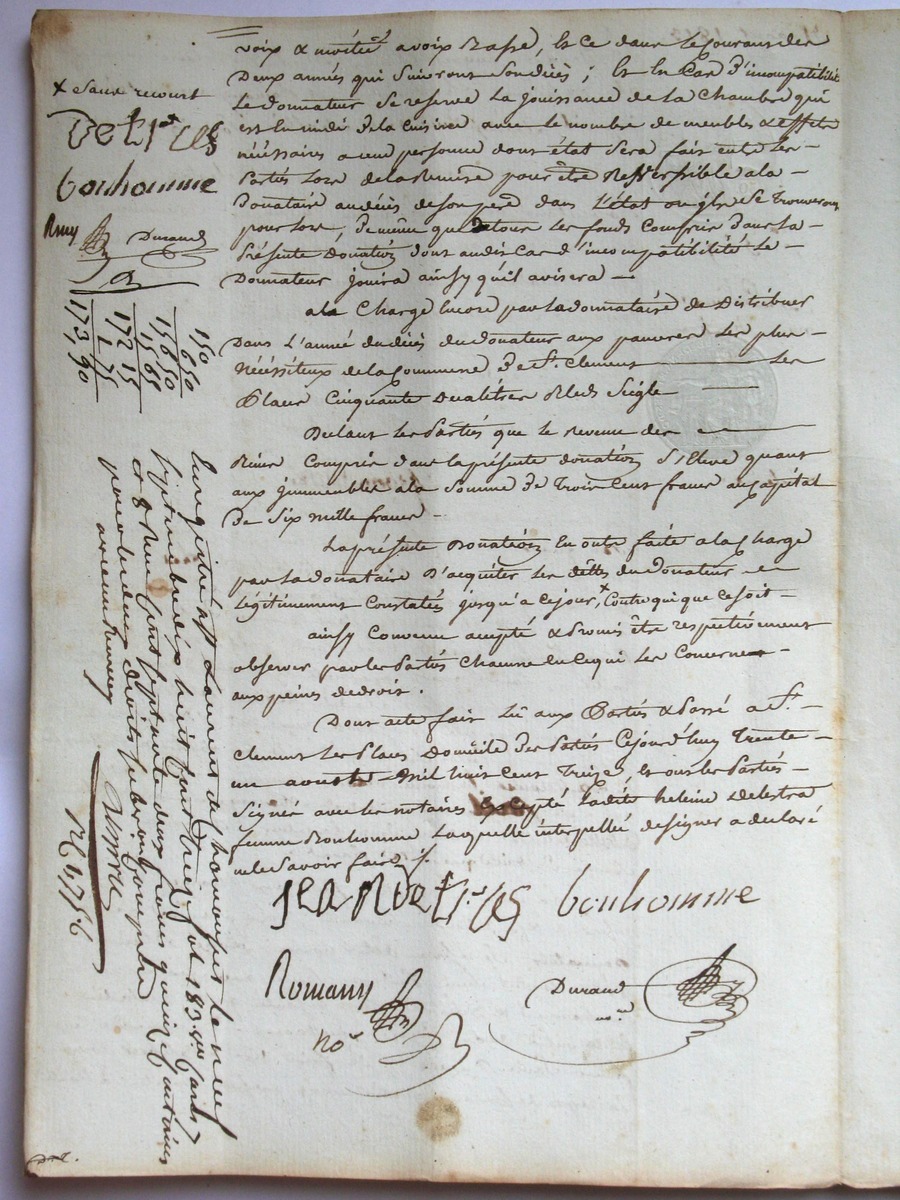 voix & moitié avoix Basse, Et ce dans le Courant des
Deux années qui Suivront Son décès ; Et En Cas D'incompatibilité
Le donnateur Se reserve La jouissance de la Chambre qui
est En midi de la Cuisine avec le nombre de meubles & effets
nécéssaires a une personne dont état Sera fait entre les
Parties Lors de la Remise pour être Reversible a la
Donataire au décès de Son pere dans L'état ou ils Se trouveront
pour lors, De même que de tous Les fonds Compris Dans La
Présente Donation dont audit Cas d'incompatibilité Le
Donnateur jouira ainsy qu'il avisera
a la Charge Encore par La donnataire de Distribuer
Dans L'année du décès du donateur aux pauvres Les plus
Nécéssiteux de la Commune De St. Clement Les
Places Cinquante Decalitres Bled Seigle
Declarent Les Parties que Le Revenu des
Biens Compris dans la présente donation S'Eleve quant
aux jmmeubles a la Somme De Trois Cent francs au Capital
De Six mille francs
La présente Donation En outre faite a la Charge
par La donataire D'acquiter Les dettes du Donateur
Légitimement Constatés jusqu'a Ce jour, x Contre qui que Ce Soit
ainsy Convenu accepté & Promis être respectivement
observer par les Parties Chacune En Ce qui Les Concerne
aux peines de droit.
Dont acte fait Lu aux Parties & Passé a St.
Clement Les Places Domicile Des Parties Cejourd'huy Trente
un aoust Mil huit Cent Treize, Et ont Les Parties
Signé avec les notaires Excepté Ladite heleine Delestra
femme Bonhomme Laquelle interpellée de signer a declaré
ne le Savoir faire
Jean bonhomme
Romany Durand
nore
x Sauf recourt
bonhomme
Rmy Durand
150
650
15650
1565
17215
1 75
173,90
Enregistré à St Laurent de Chamousset le neuf
Septembre dix huit Cent treize fol 183
et 8 Reçu Cent Septante deux francs quinze Centimes
pour les deux droits subvention Comprise